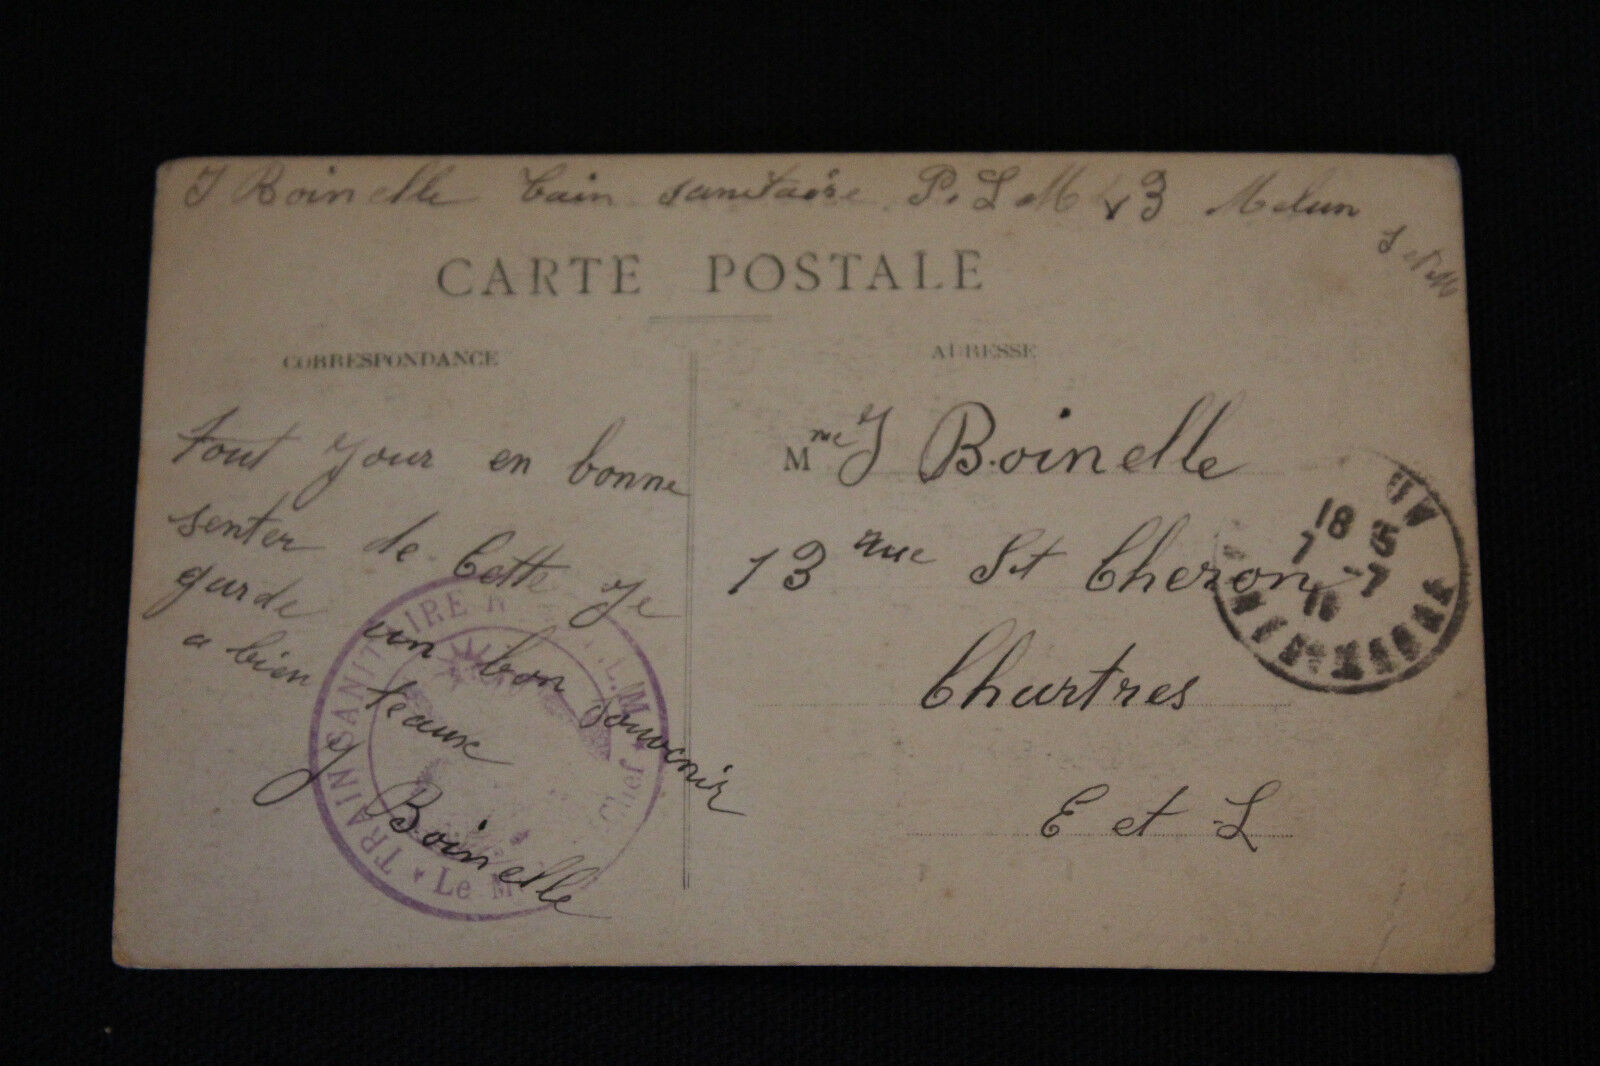 J Boinelle train sanitaire P. L M v 3 Melun
S et M
CARTE POSTALE
CORRESPONDANCE
ADRESSE
tout jour en bonne
senter de Cette je
garde un bon souvenir
a bien teaux
J Boinelle
Mme J Boinelle
13 rue St Cheron
Chartres
E et L
TRAIN SANITAIRE N L.M.
Le M Chef
18 5
7 -7
16